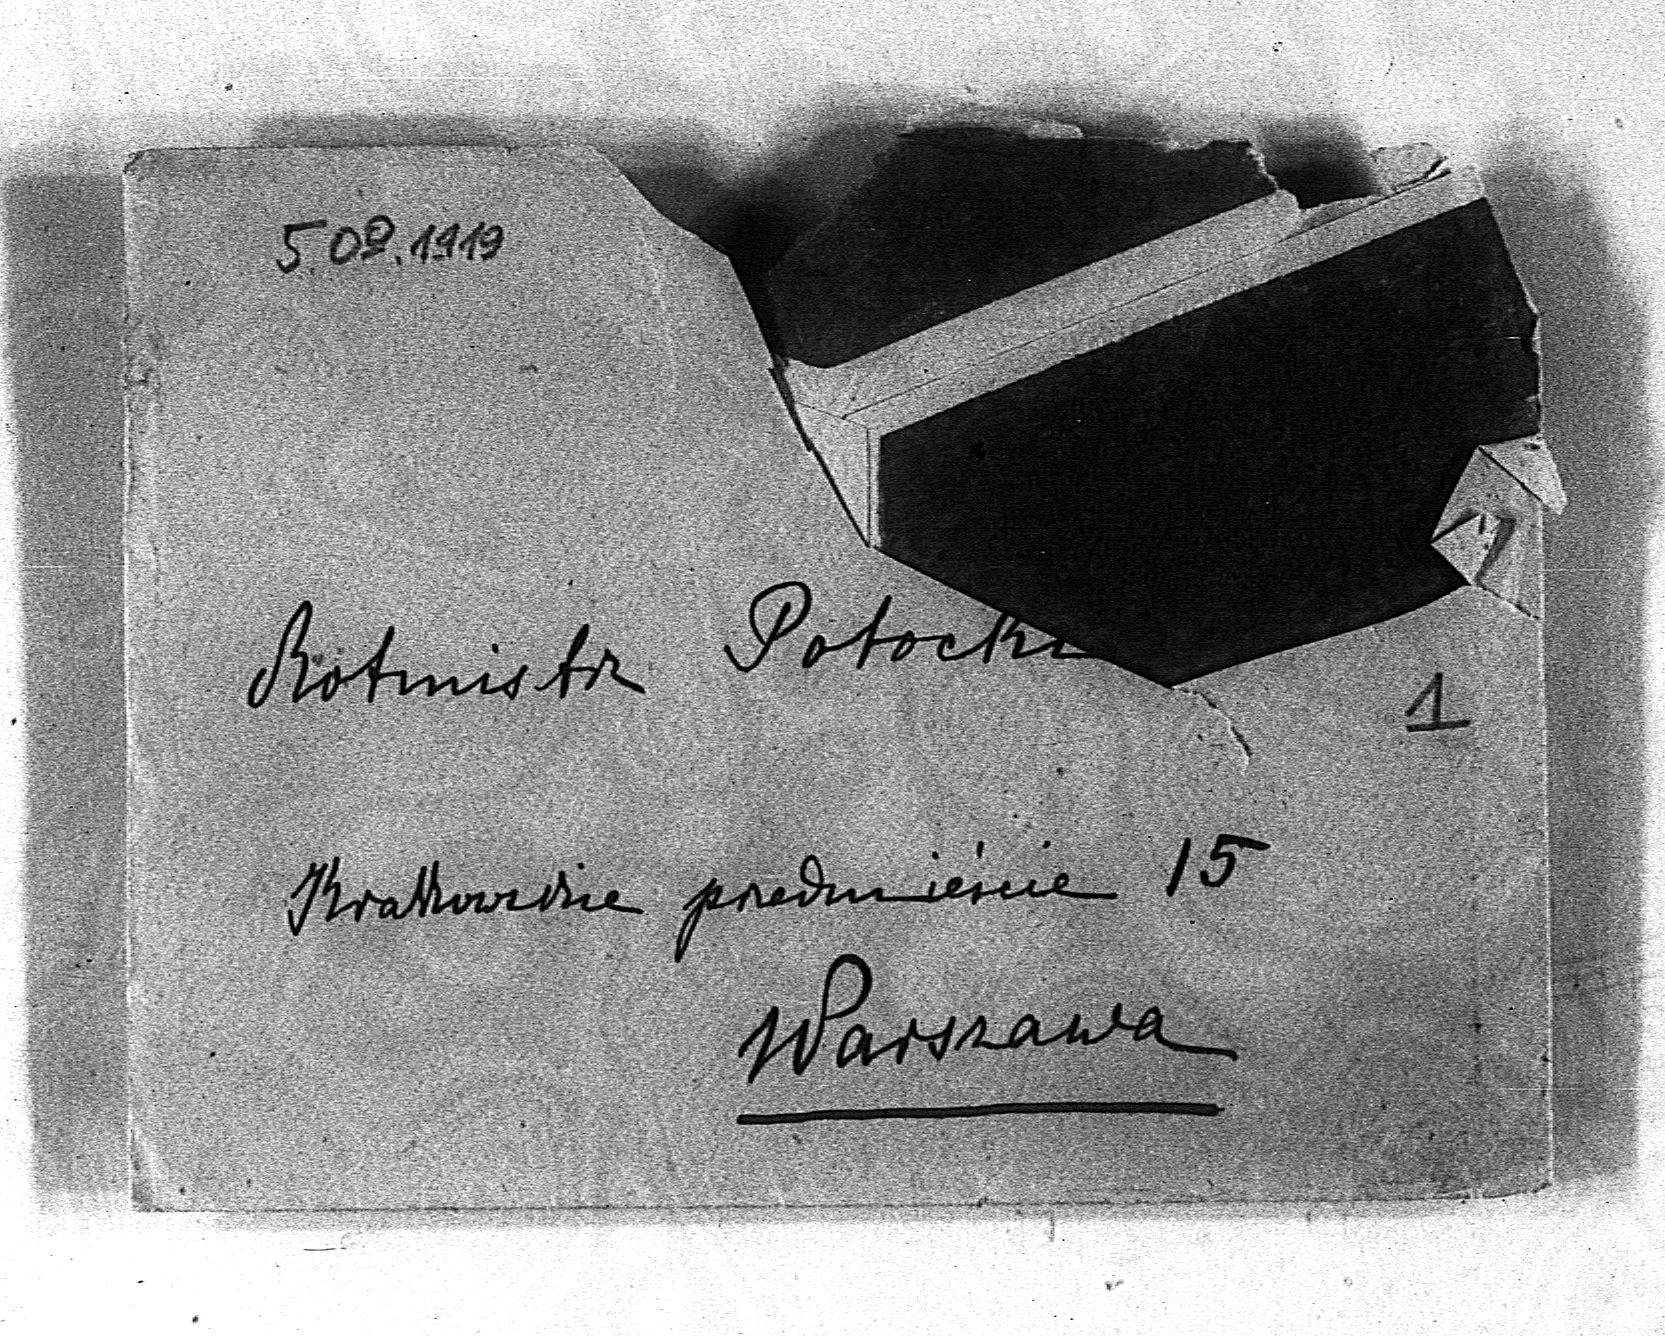 5.09.1919
Rotmistrz Potocki
1
Krakowskie przedmieście 15
Warszawa